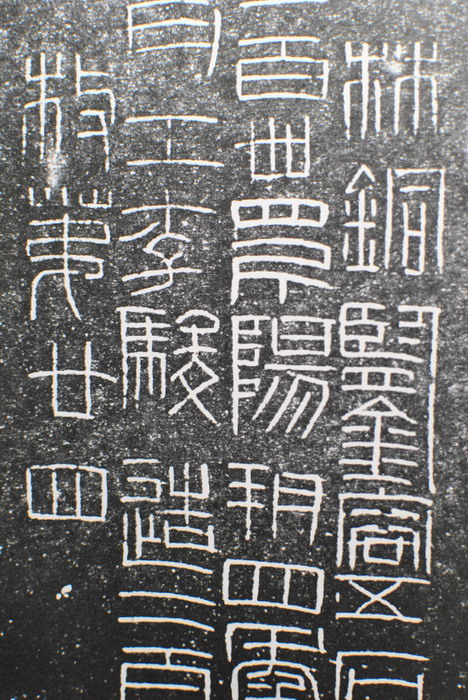 林銅鑒容五石
百卅四斤陽朔四年
月工李駿造二百
枚第廿四